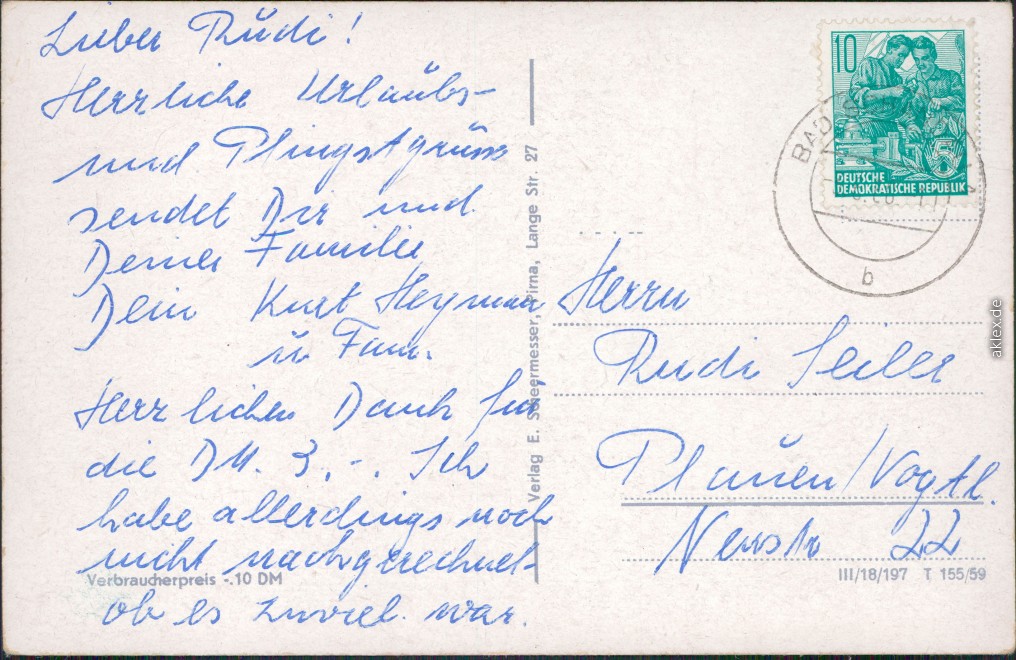 Lieber Rudi!
Herrliche Urlaubs-
und Pfingstgrüsse
sendet Dir und
Deiner Familie
Dein Kurt Heymann
u. Fam.
Herzlichen Dank für
die DM. 3,-. Ich
habe allerdings noch
nicht nachgerechnet
ob es zuviel war.
Verbraucherpreis -.10 DM
Verlag E. Scheermesser, Pirna, Lange Str. 27
10
DEUTSCHE
DEMOKRATISCHE REPUBLIK
BAD
b
Herrn
Rudi Seiler
Plauen/Vogtl.
Neustr 22
III/18/197 T 155/59
aklex.de